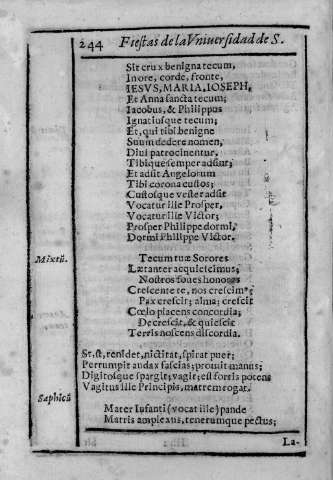 244 Fiestas de la Vniuersidad de S.
Sit crux benigna tecum,
In ore, corde, fronte,
IESVS, MARIA, IOSEPH,
Et Anna sancta tecum;
Iacobus, & Philippus
Ignatiusque tecum;
Et, qui tibi benigne
Suum dedere nomen,
Diui patrocinentur.
Tibique semper adsint;
Et adsit Angelorum
Tibi corona custos;
Custosque vester adsit
Vocatur ille Prosper,
Vocatur ille Victor;
Prosper Philippe dormi,
Dormi Philippe Victor.
Mixtū.
Tecum tuæ Sorores
Lætanter acquiescimus;
Nostros foues honores
Crescente te, nos crescimꝰ;
Pax crescit; alma; crescit
Cœlo placens concordia;
Decrescit, & quiescit
Terris noscens discordia.
St, st, renidet, nictitat, spirat puer;
Perrumpit audax fascias; prouit manus;
Digitosque spargit; vagit; est fortis potens
Vagitus ille Principis, matrem rogat.
Saphicū
Mater Infanti (vocat ille) pande
Matris amplexus, tenerumque pectus;
La-